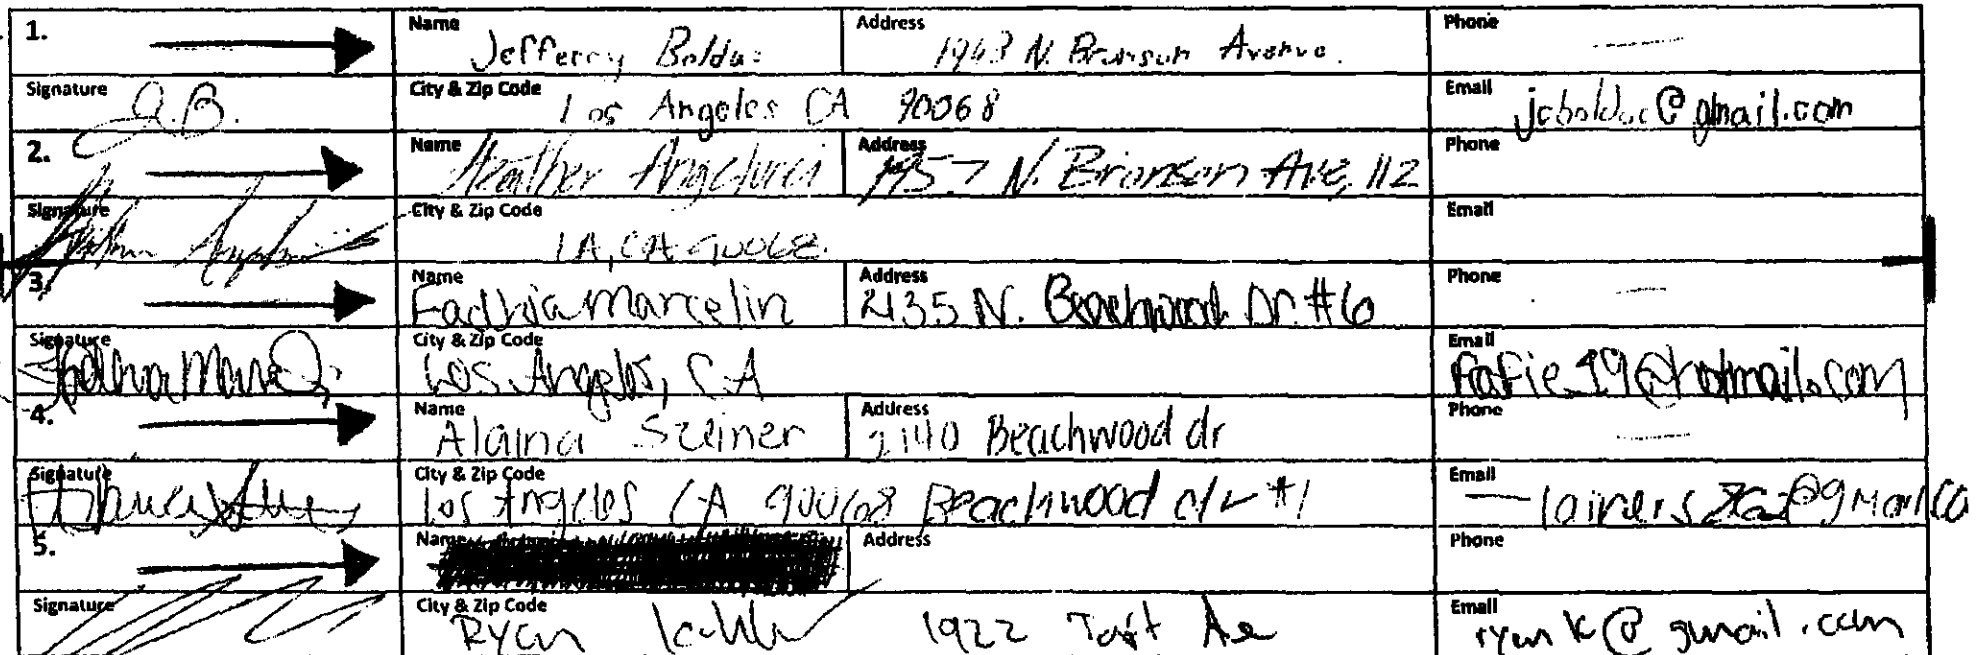 1. Name Jefferry Address 1943 N. Bronson Avenue. Phone
Signature J.B. City & Zip Code Los Angeles CA 90068 Email @gmail.com
2. Name Heather Address 1957 N. Bronson Ave, 112 Phone
Signature City & Zip Code LA, CA 90068. Email
3. Name Fadhia Marcelin Address 2135 N. Beachwood Dr. #6 Phone
Signature City & Zip Code Los Angeles, CA Email fafie19@hotmail.com
4. Name Alaina Szeiner Address 2140 Beachwood dr Phone
Signature City & Zip Code Los Angeles CA 90068 Beachwood dr #1 Email
5. Name Address Phone
Signature City & Zip Code Ryan 1922 Taft Ave Email ryank@gmail.com